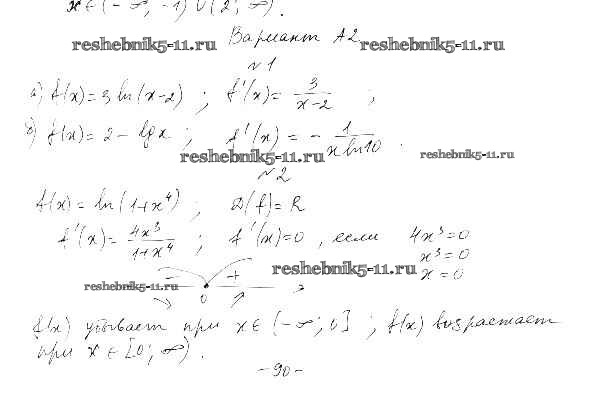 x ∈ (-∞; -1) ∪ (2; ∞).
Вариант А2
reshebnik5-11.ru reshebnik5-11.ru
№1
а) f(x) = 3 ln(x-2) ; f'(x) = 3/(x-2) ;
б) f(x) = 2 - lg x ; f'(x) = - 1/(x ln10) .
reshebnik5-11.ru reshebnik5-11.ru
№2
f(x) = ln(1+x⁴) ; D(f) = R
f'(x) = 4x³/(1+x⁴) ; f'(x) = 0 , если 4x³=0
x³=0
x=0
- +
reshebnik5-11.ru
reshebnik5-11.ru
0
f(x) убывает при x ∈ (-∞; 0] ; f(x) возрастает
при x ∈ [0; ∞).
-90-